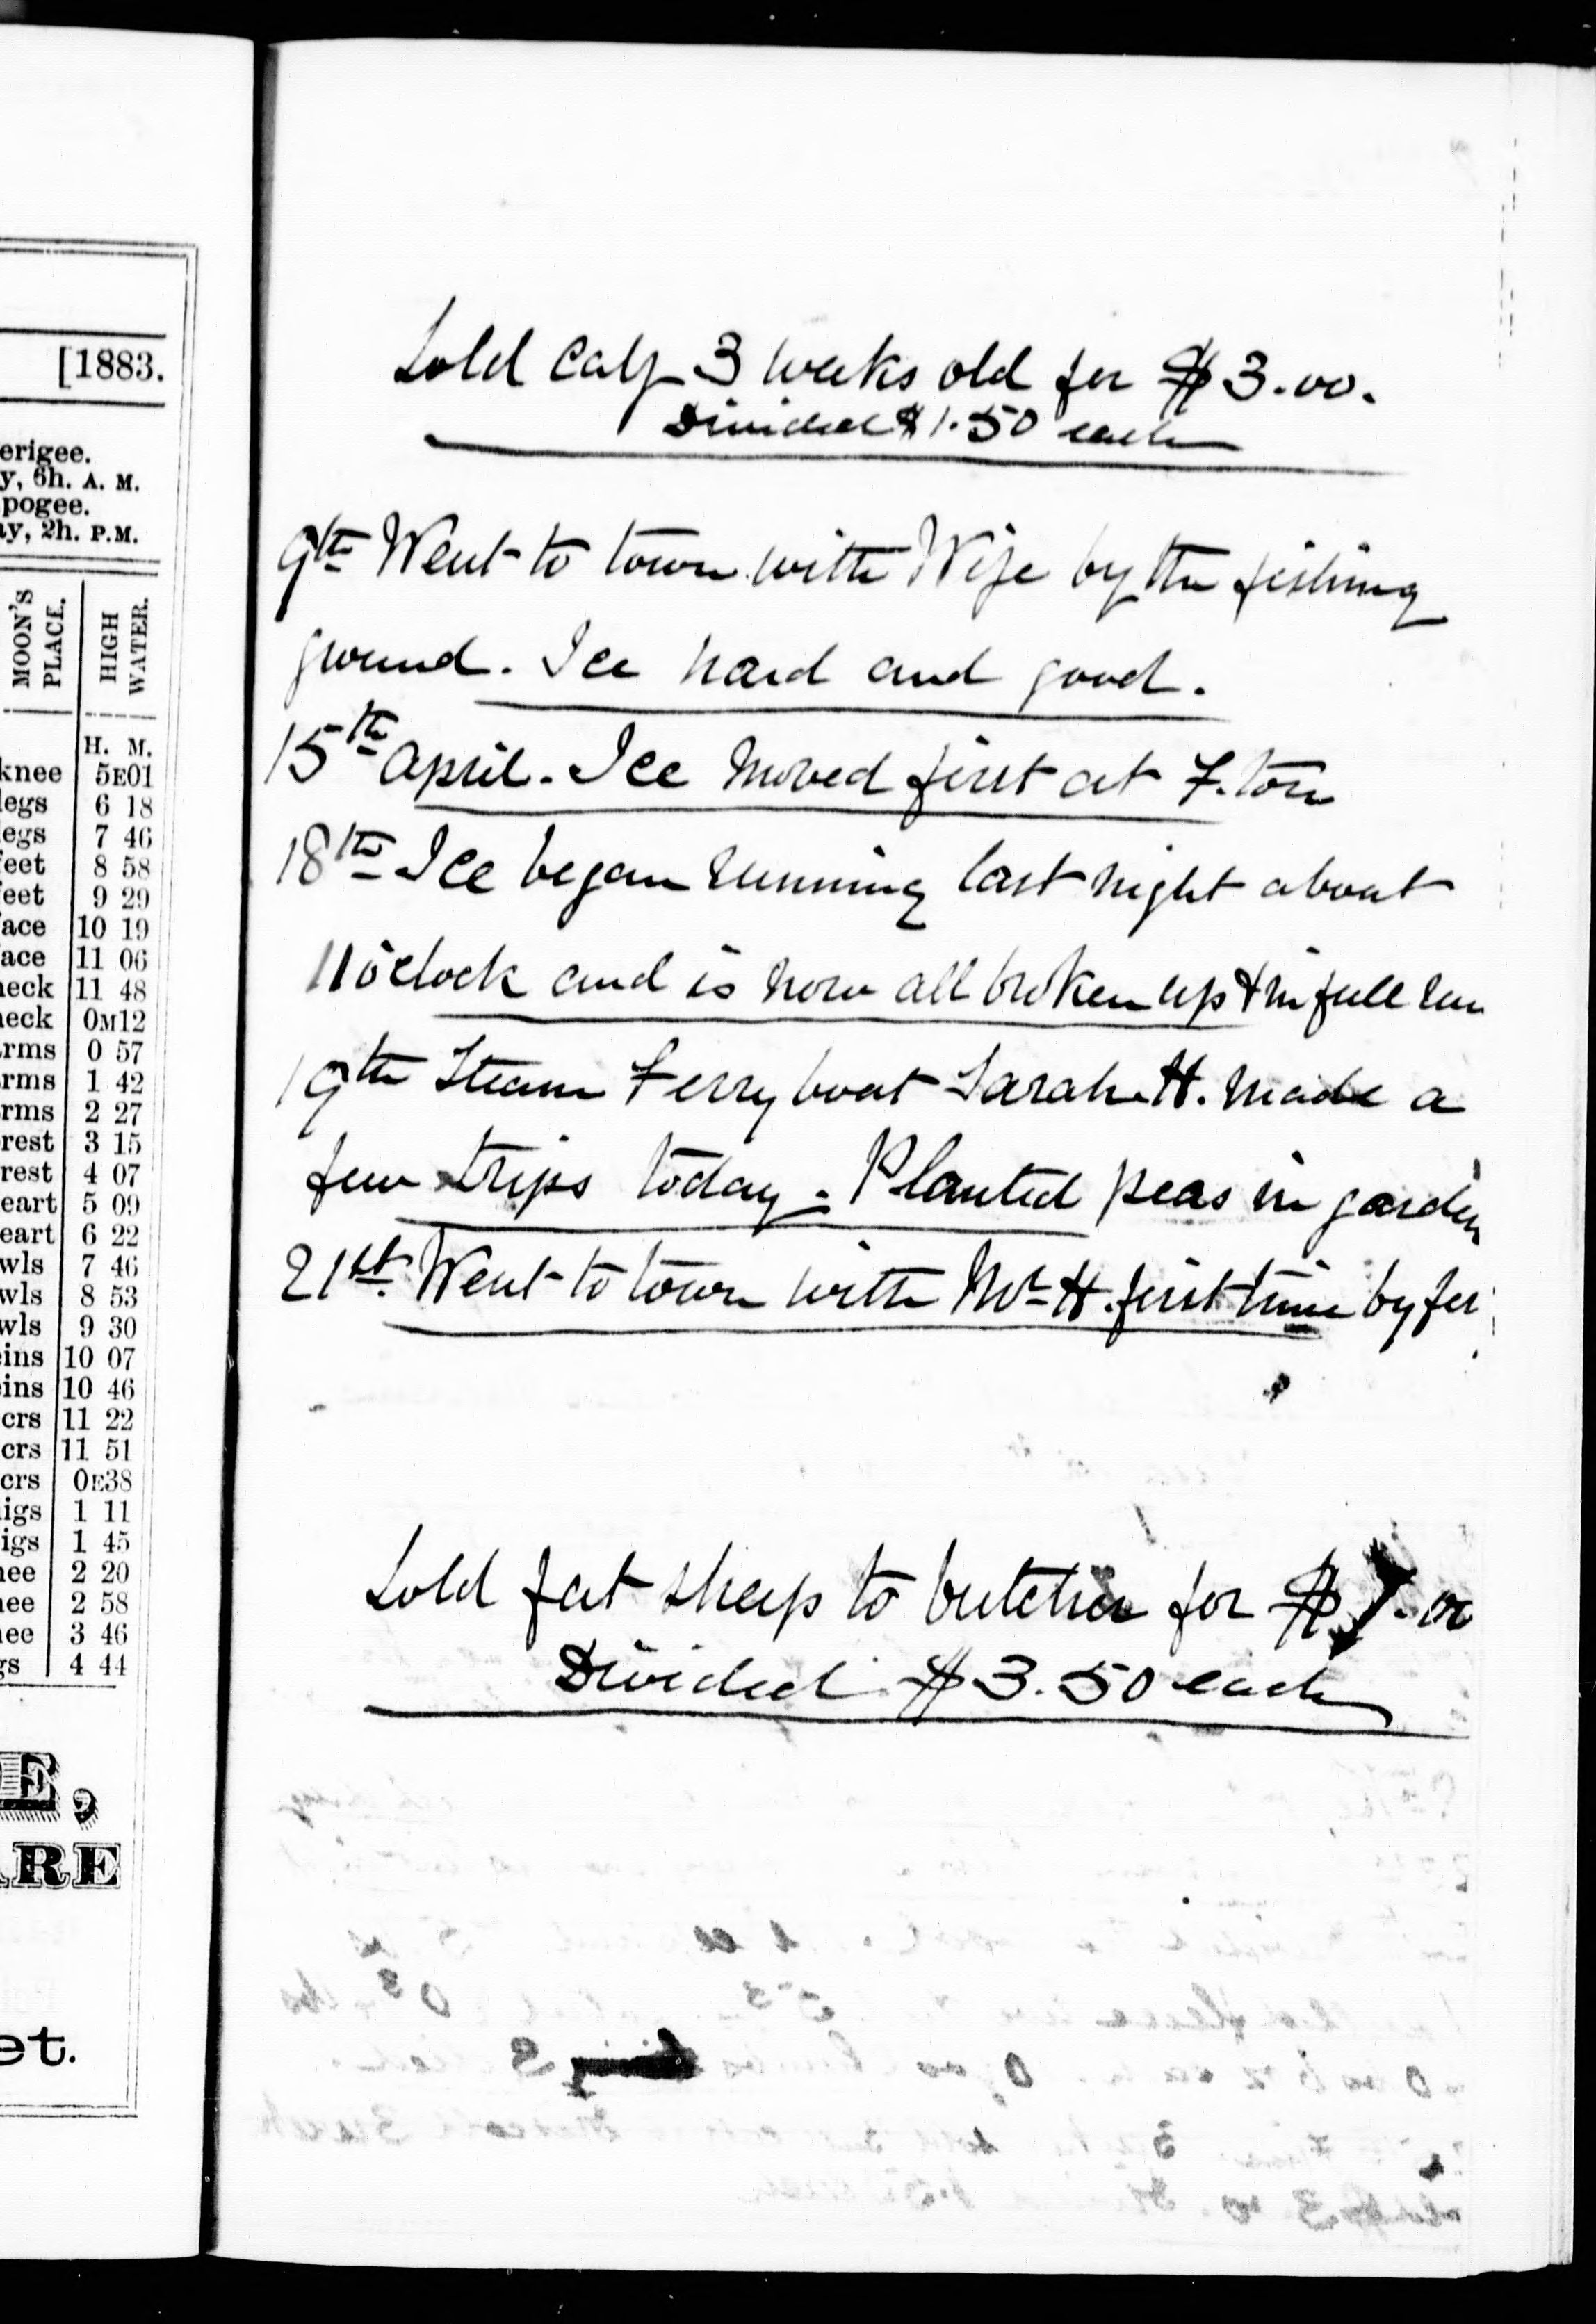 [1883.
erigee.
y, 6h. A. M.
pogee.
ay, 2h. P.M.
MOON'S PLACE.
HIGH WATER.
H. M.
knee 5E01
legs 6 18
egs 7 46
feet 8 58
eet 9 29
ace 10 19
ace 11 06
neck 11 48
neck 0M12
rms 0 57
rms 1 42
rms 2 27
rest 3 15
rest 4 07
eart 5 09
eart 6 22
wls 7 46
wls 8 53
wls 9 30
eins 10 07
eins 10 46
crs 11 22
crs 11 51
crs 0E38
igs 1 11
igs 1 45
nee 2 20
nee 2 58
nee 3 46
gs 4 44
E,
RE
et.
Sold Calf 3 weeks old for $3.00.
Divided $1.50 each
9th Went to town with Wife by the fishing
ground. Ice hard and good.
15th April. Ice moved first at F.ton
18th Ice began running last night about
11 o'clock and is now all broken up & in full run
19th Steam Ferry boat Sarah H. made a
few trips today. Planted peas in garden
21st. Went to town with Mr H. first time by fer
Sold fat sheep to butcher for $7.00
Divided $3.50 each